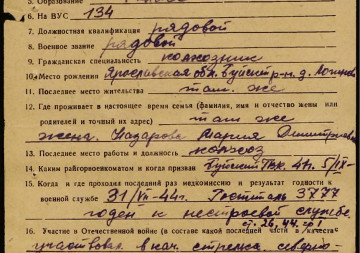 5. Образование
6. На ВУС 134
7. Должностная квалификация рядовой
8. Военное звание рядовой
9. Гражданская специальность колхозник
10. Место рождения Ярославская обл. Буйский р-н, д.
11. Последнее место жительства там же
12. Где проживает в настоящее время семья (фамилия, имя и отчество жены или
родителей и точный их адрес) там же
жена. Назарова Мария Дмитриевна
13. Последнее место работы и должность колхоз
14. Каким райгорвоенкоматом и когда призван Буйский РВК. 41г. 5/IX-
15. Когда и где проходил последний раз медкомиссию и результат годности к
военной службе 31/VII-44г. Госпиталь 3777
годен к нестроевой службе
16. Участие в Отечественной войне (в составе какой последней части в качестве
участвовал в кач. стрелка, северо-